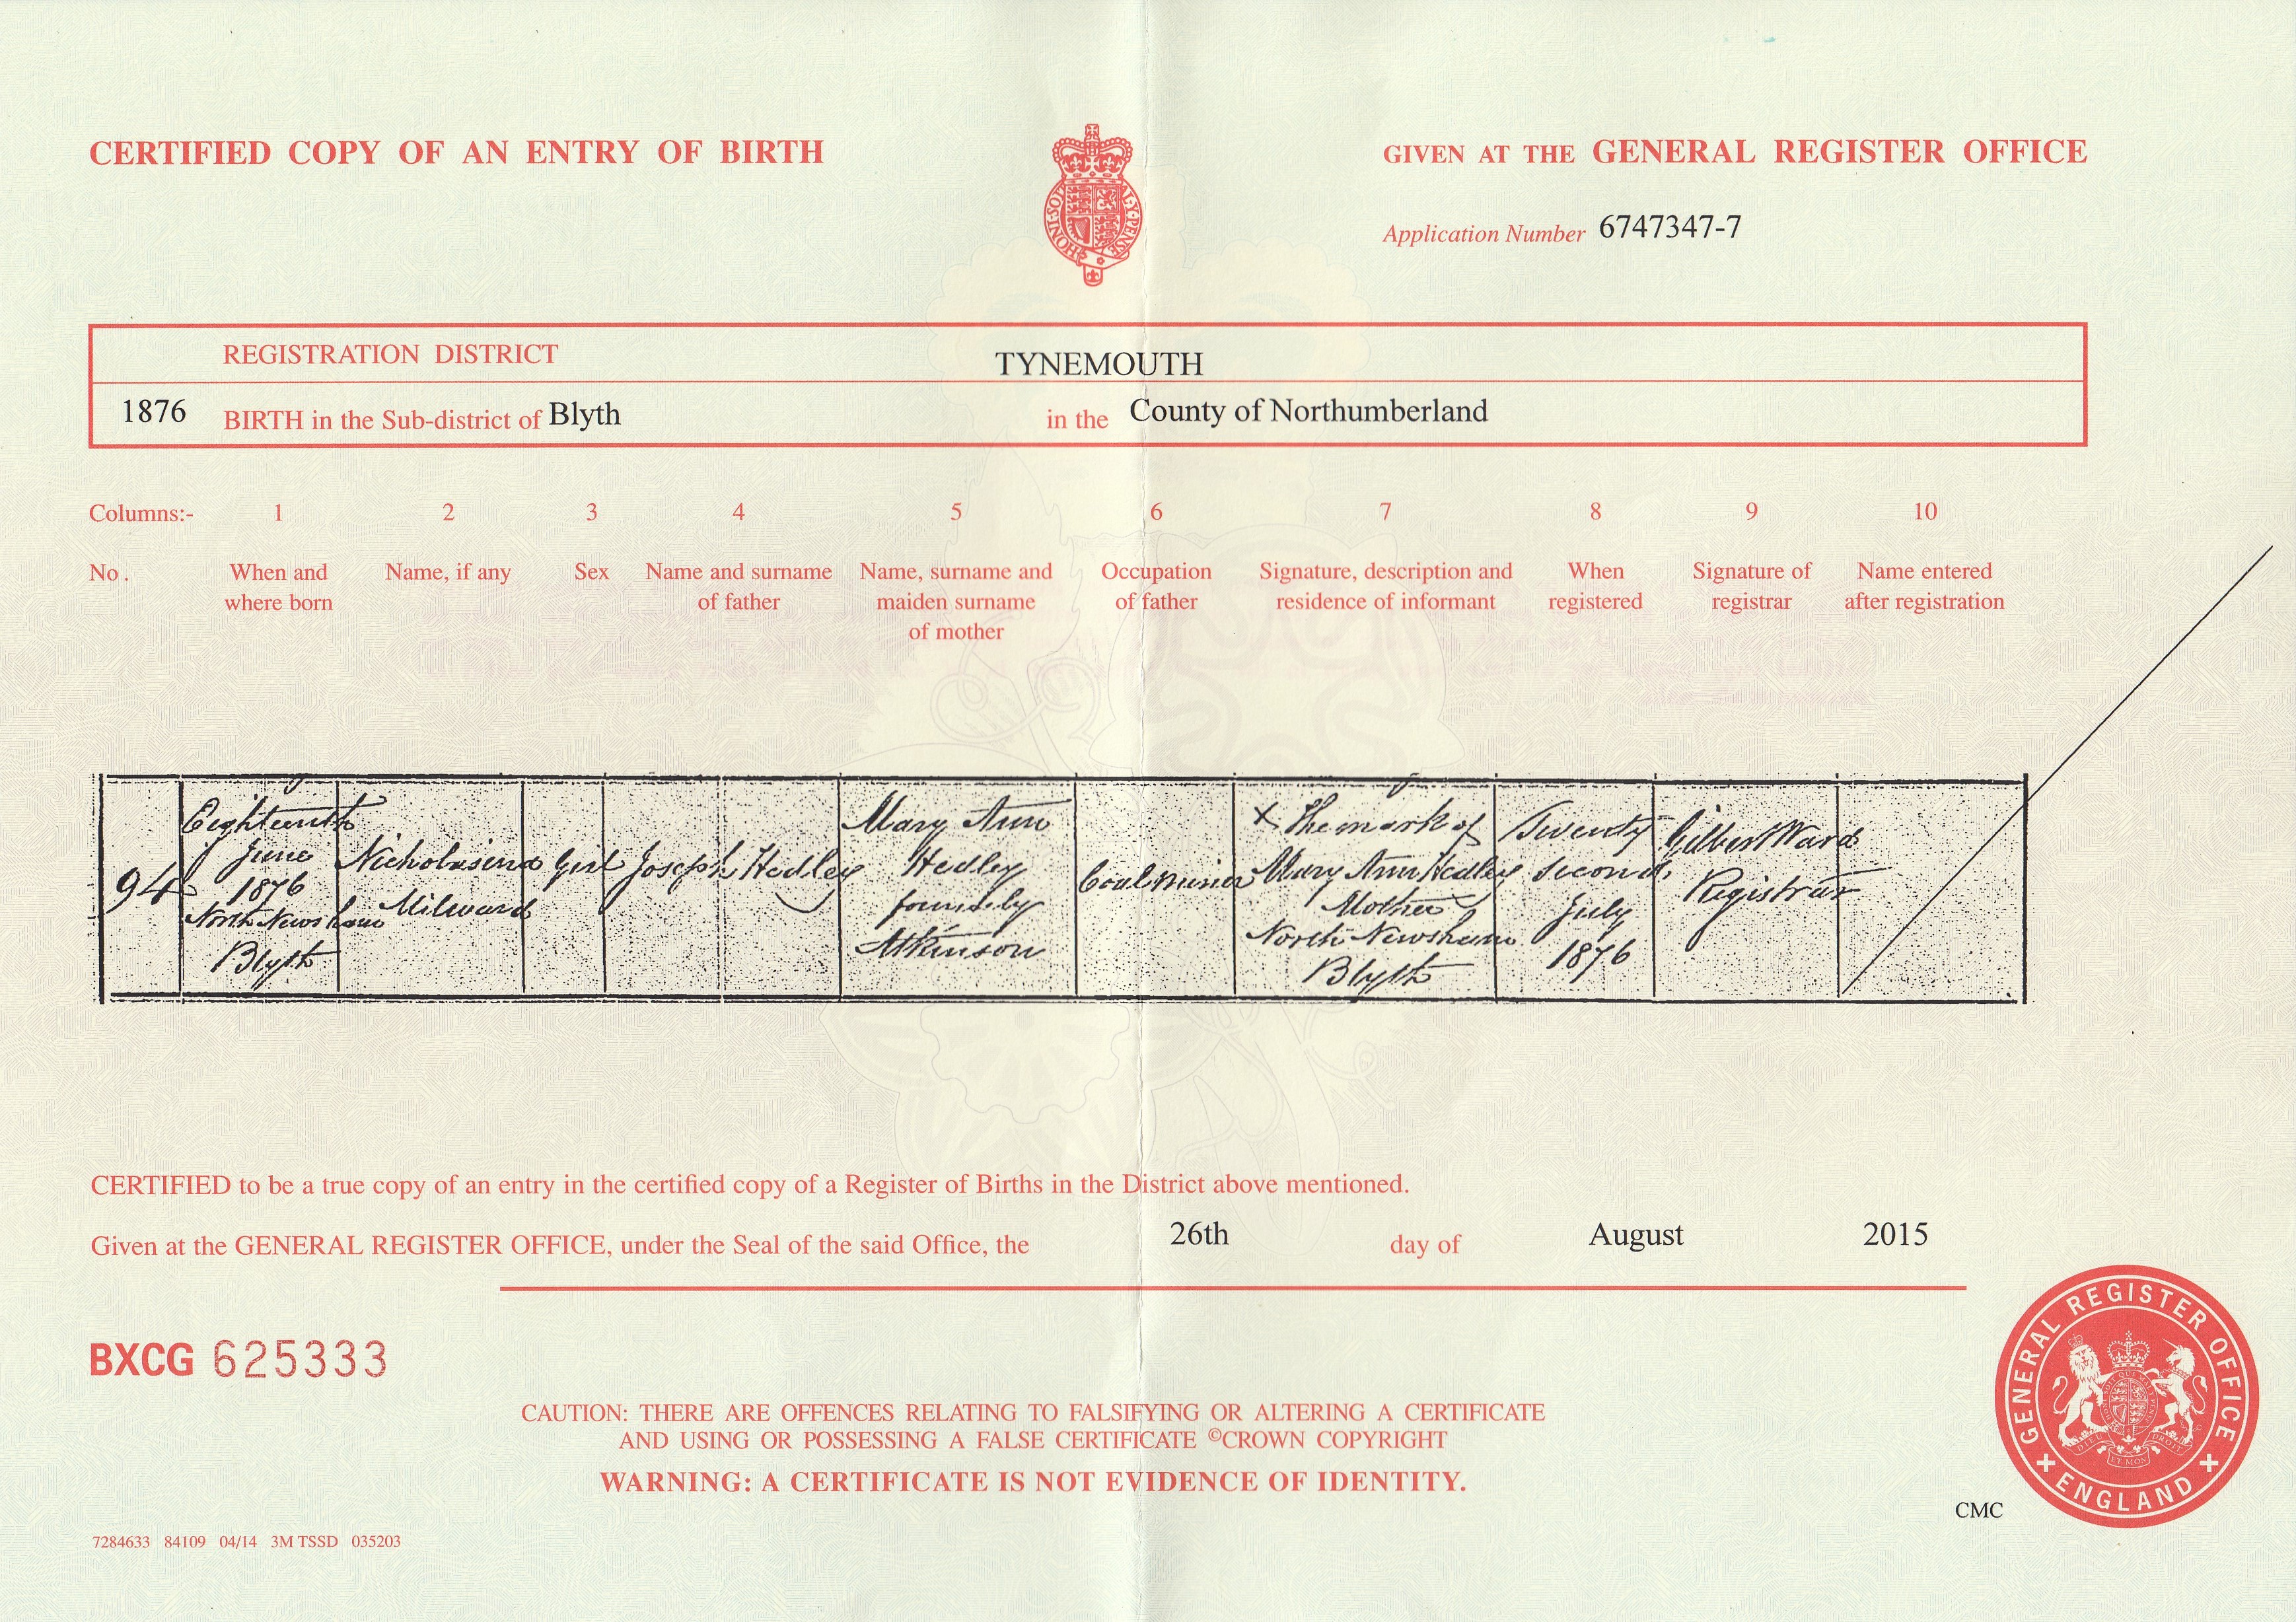 CERTIFIED COPY OF AN ENTRY OF BIRTH
GIVEN AT THE GENERAL REGISTER OFFICE
HONI·SOIT
MAL·Y·PENSE
Application Number 6747347-7
REGISTRATION DISTRICT TYNEMOUTH
1876 BIRTH in the Sub-district of Blyth in the County of Northumberland
Columns:- 1 2 3 4 5 6 7 8 9 10
No. When and Name, if any Sex Name and surname Name, surname and Occupation Signature, description and When Signature of Name entered
where born of father maiden surname of father residence of informant registered registrar after registration
of mother
94
Eighteenth
June
1876
North Newsham
Blyth
Nicholasina
Milward
Girl
Joseph Hedley
Mary Ann
Hedley
formerly
Atkinson
Coal Miner
X The mark of
Mary Ann Hedley
Mother
North Newsham
Blyth
Twenty
second
July
1876
Gilbert Ward
Registrar
CERTIFIED to be a true copy of an entry in the certified copy of a Register of Births in the District above mentioned.
Given at the GENERAL REGISTER OFFICE, under the Seal of the said Office, the 26th day of August 2015
BXCG 625333
CAUTION: THERE ARE OFFENCES RELATING TO FALSIFYING OR ALTERING A CERTIFICATE
AND USING OR POSSESSING A FALSE CERTIFICATE ©CROWN COPYRIGHT
WARNING: A CERTIFICATE IS NOT EVIDENCE OF IDENTITY.
GENERAL REGISTER OFFICE
ENGLAND
DIEU ET MON DROIT
CMC
7284633 84109 04/14 3M TSSD 035203